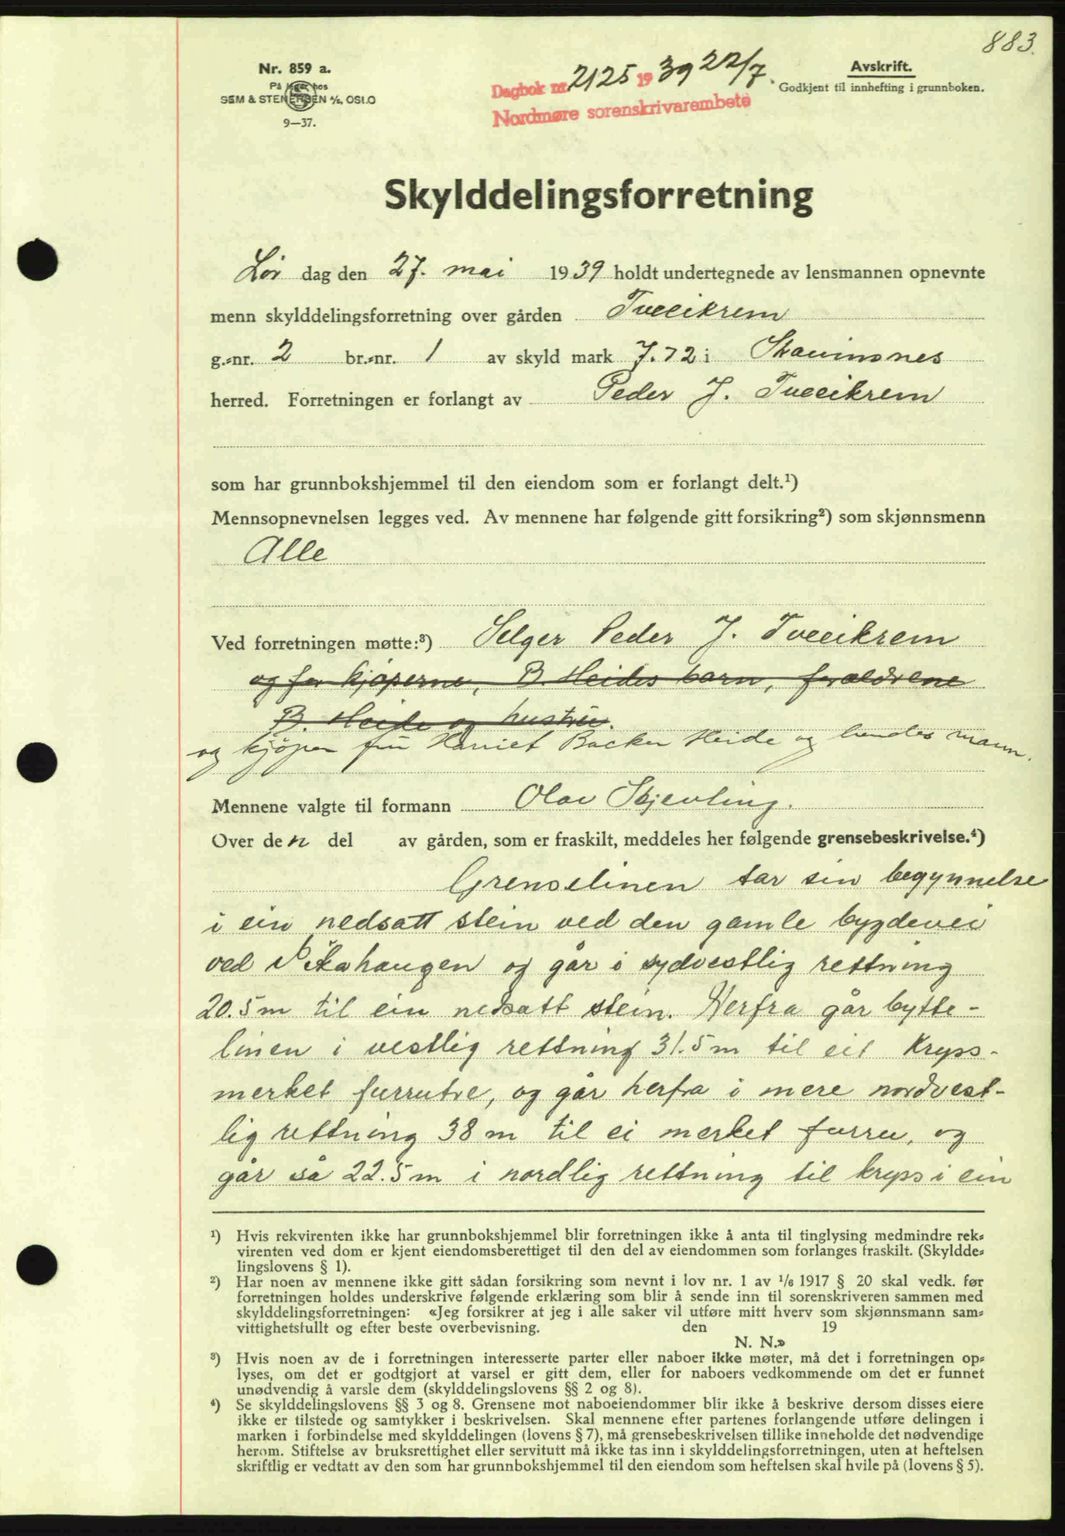 883.
Nr. 859 a.
På lager hos
SEM & STENERSEN A/S, OSLO
9—37.
Dagbok nr. 2125 1939 22/7.
Nordmøre sorenskrivarembete
Avskrift.
Godkjent til innhefting i grunnboken.
Skylddelingsforretning
Lør dag den 27. mai 1939 holdt undertegnede av lensmannen opnevnte
menn skylddelingsforretning over gården Tveeikrem
g.-nr. 2 br.-nr. 1 av skyld mark 7.72 i Straumsnes
herred. Forretningen er forlangt av Peder J. Tveeikrem
som har grunnbokshjemmel til den eiendom som er forlangt delt.¹)
Mennsopnevnelsen legges ved. Av mennene har følgende gitt forsikring²) som skjønnsmenn
Alle
Ved forretningen møtte:³) Selger Peder J. Tveeikrem
og for kjøperne, B. Heides barn, foreldrene
B. Heide og hustru.
og kjøper fru Harriet Backer Heide og hendes mann.
Mennene valgte til formann Olav Skjevling.
Over den del av gården, som er fraskilt, meddeles her følgende grensebeskrivelse.⁴)
Grenselinen tar sin begynnelse
i ein nedsatt stein ved den gamle bygdevei
ved haugen og går i sydvestlig rettning
20.5 m til ein nedsatt stein. Herfra går bytte-
linen i vestlig rettning 31.5 m til eit kryss-
merket furrutre, og går herfra i mere nordvest-
lig rettning 38 m til ei merket furru, og
går så 22.5 m i nordlig rettning til kryss i ein
¹) Hvis rekvirenten ikke har grunnbokshjemmel blir forretningen ikke å anta til tinglysing medmindre rek-
virenten ved dom er kjent eiendomsberettiget til den del av eiendommen som forlanges fraskilt. (Skyldde-
lingslovens § 1).
²) Har noen av mennene ikke gitt sådan forsikring som nevnt i lov nr. 1 av 1/6 1917 § 20 skal vedk. før
forretningen holdes underskrive følgende erklæring som blir å sende inn til sorenskriveren sammen med
skylddelingsforretningen: «Jeg forsikrer at jeg i alle saker vil utføre mitt hverv som skjønnsmann sam-
vittighetsfullt og efter beste overbevisning. den 19
N. N.»
³) Hvis noen av de i forretningen interesserte parter eller naboer ikke møter, må det i forretningen op-
lyses, om det er godtgjort at varsel er gitt dem, eller for naboers vedkommende om det er funnet
unødvendig å varsle dem (skylddelingslovens §§ 2 og 8).
⁴) Se skylddelingslovens §§ 3 og 8. Grensene mot naboeiendommer blir ikke å beskrive dersom disses eiere
ikke er tilstede og samtykker i beskrivelsen. Skal mennene efter partenes forlangende utføre delingen i
marken i forbindelse med skylddelingen (lovens § 7), må grensebeskrivelsen tillike inneholde det nødvendige
herom. Stiftelse av bruksrettighet eller servitutt må ikke tas inn i skylddelingsforretningen, uten at heftelsen
skriftlig er vedtatt av den som har grunnbokshjemmel til den eiendom som heftelsen skal hvile på (lovens § 5).